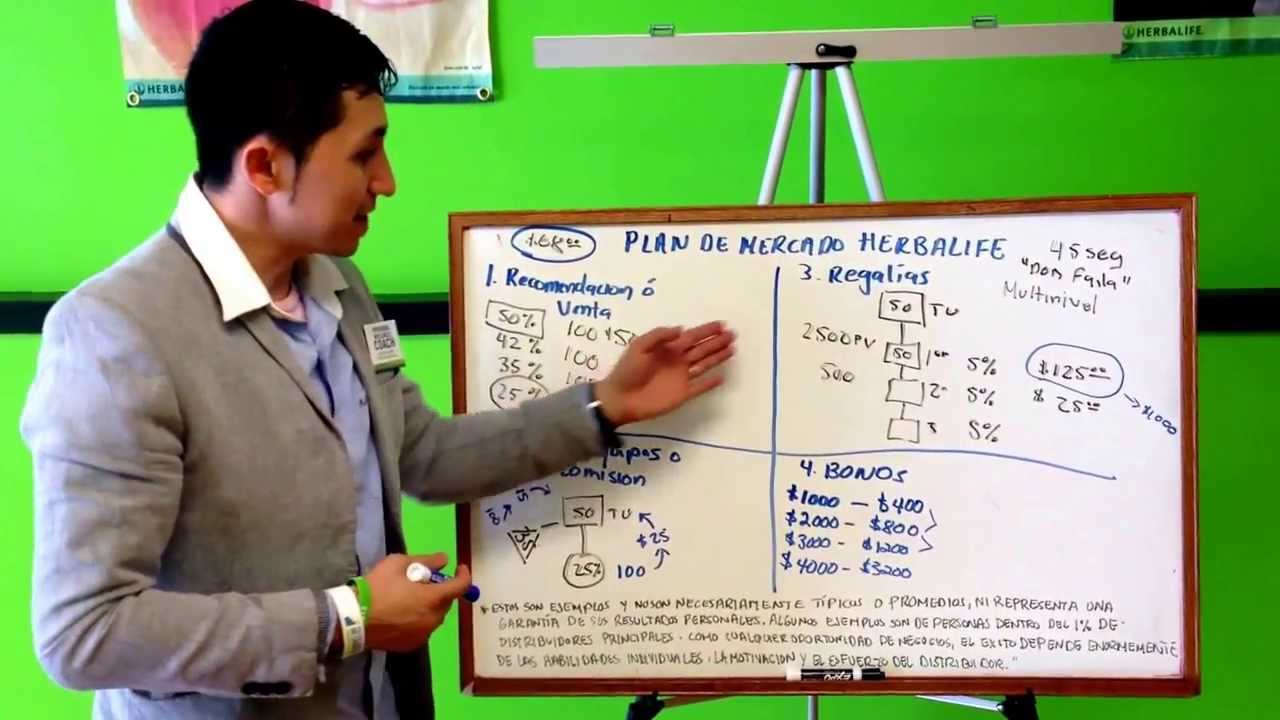 HERBALIFE.
HERBA
COACH
$68.00
PLAN DE MERCADO HERBALIFE
45 seg
"Don Faila"
Multinivel
1. Recomendacion ó
Venta
50%
42%
35%
25%
100
100
3. Regalías
50 TU
2500PV
50 1er 5%
500
2º 5%
3 5%
$125.00
$ 25.00
$1,000
uipos o
omision
50 TU
$25
25% 100
4. BONOS
$1000 — $400
$2000 - $800
$3000 - $1200
$4000 - $3200
*ESTOS SON EJEMPLOS Y NO SON NECESARIAMENTE TÍPICOS O PROMEDIOS, NI REPRESENTA UNA
GARANTÍA DE SUS RESULTADOS PERSONALES. ALGUNOS EJEMPLOS SON DE PERSONAS DENTRO DEL 1% DE
DISTRIBUIDORES PRINCIPALES. COMO CUALQUIER OPORTUNIDAD DE NEGOCIOS, EL EXITO DEPENDE ENORMEMENTE
DE LAS HABILIDADES INDIVIDUALES, LA MOTIVACION Y EL ESFUERZO DEL DISTRIBUIDOR."
EXPO